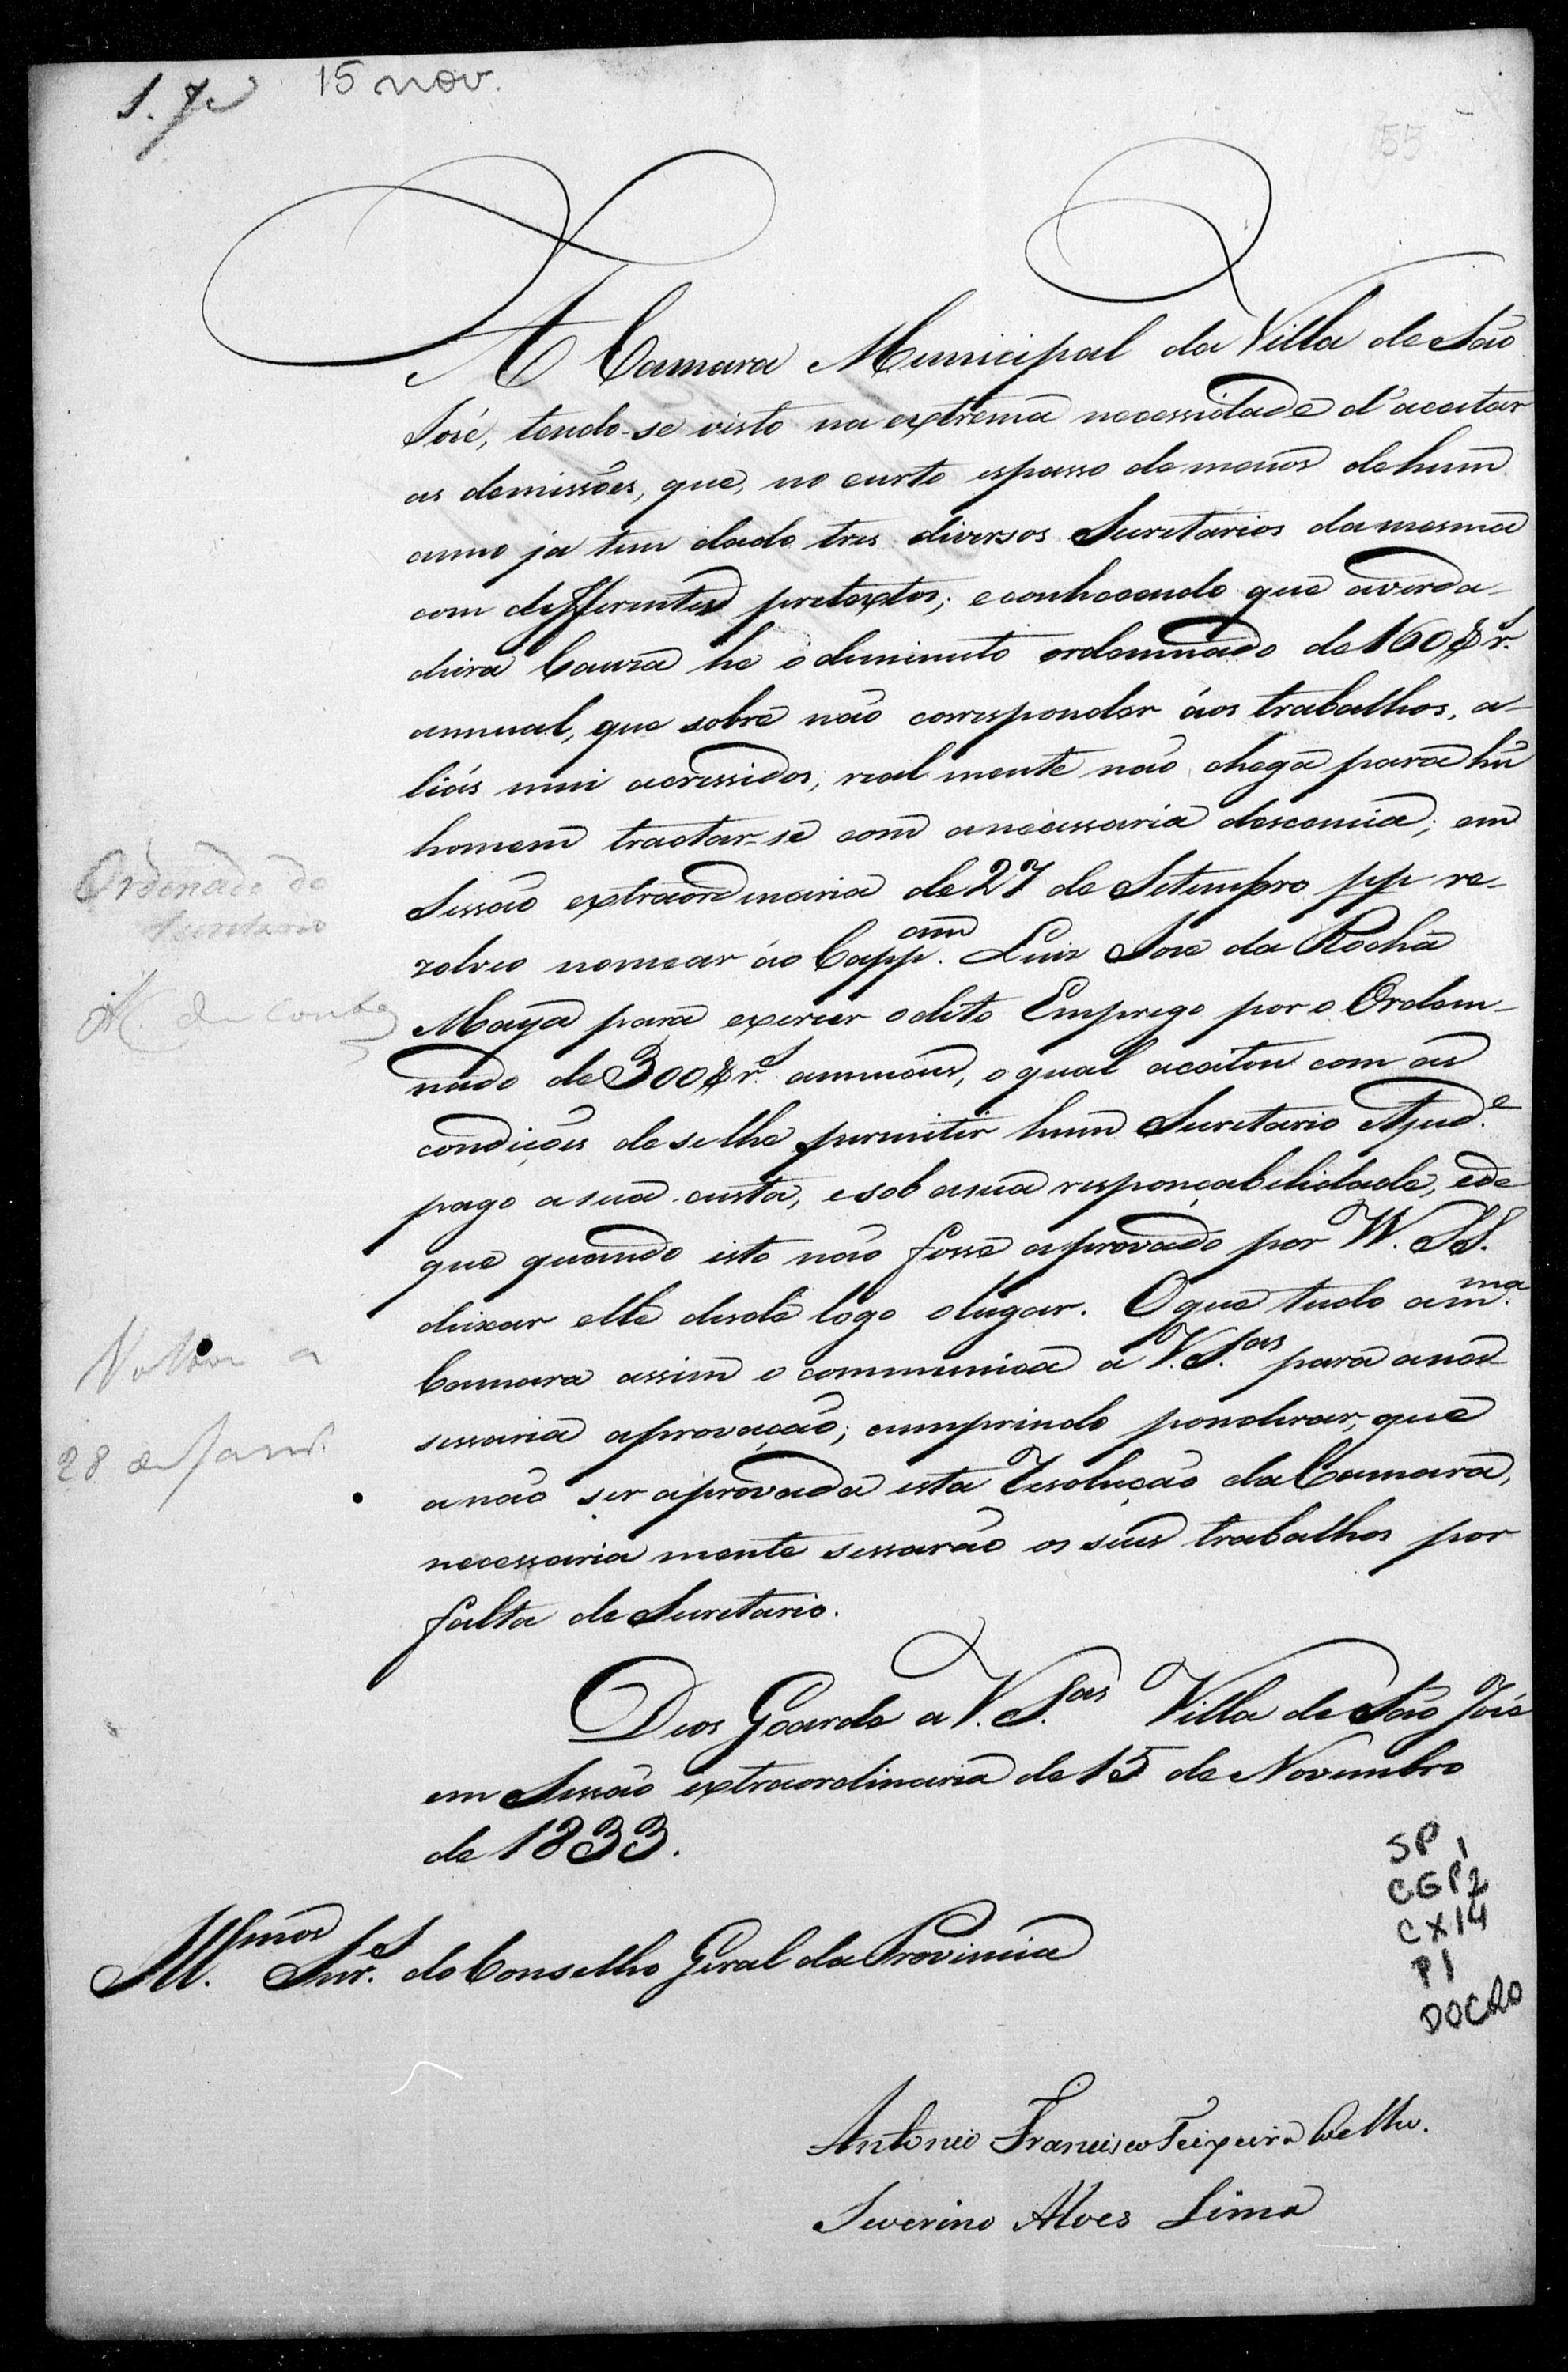 15 nov.
55
A Camara Municipal da Villa de São
José, tendo-se visto na extrema necessidade d'aceitar
as demissões, que, no curto espasso de menos de hum
anno ja tem dado tres diversos Secretarios da mesma
com differentes pretextos; e conhecendo que a verda-
deira Cauza he o deminuto ordennado de 160$rs.
annual, que sobre não corresponder áos trabalhos, a-
liás mui acressidos, real mente não chega para hũ
homem tractar-se com a necessaria descencia; em
Sessão extraordinaria de 27 de Setembro pp re-
zolveo nomear ao Cappam. Luiz Jose da Rocha
Maya para exercer o dito Emprego por o Orden-
nado de 300$rs. annuaes, o qual aceitou com as
condições de se lhe permitir hum Secretario Ajude.
pago a sua custa, e sob a sua responçabelidade, e de
que quando isto não fosse aprovado por VV. SS.
deixar elle desde logo o lugar. O que tudo a mma.
Camara assim o communica a V.S.as para a nec
sessaria aprovação; cumprindo ponderar, que
a não ser aprovada esta Rezolução da Camara,
necessaria mente sessarão os seus trabalhos por
falta de Secretario.
Deos Goarde a V.S.as Villa de São José
em Sessão extraordinaria de 15 de Novembro
de 1833.
Ordenado do
Secretario
Á C. de Contas
Voltou a
28 de Janr.
Illmos. Snrs. do Conselho Geral da Provincia
SP 1
CGP2
CX14
P1
DOC20
Antonio Francisco Teixeira Coelho.
Severino Alves Lima